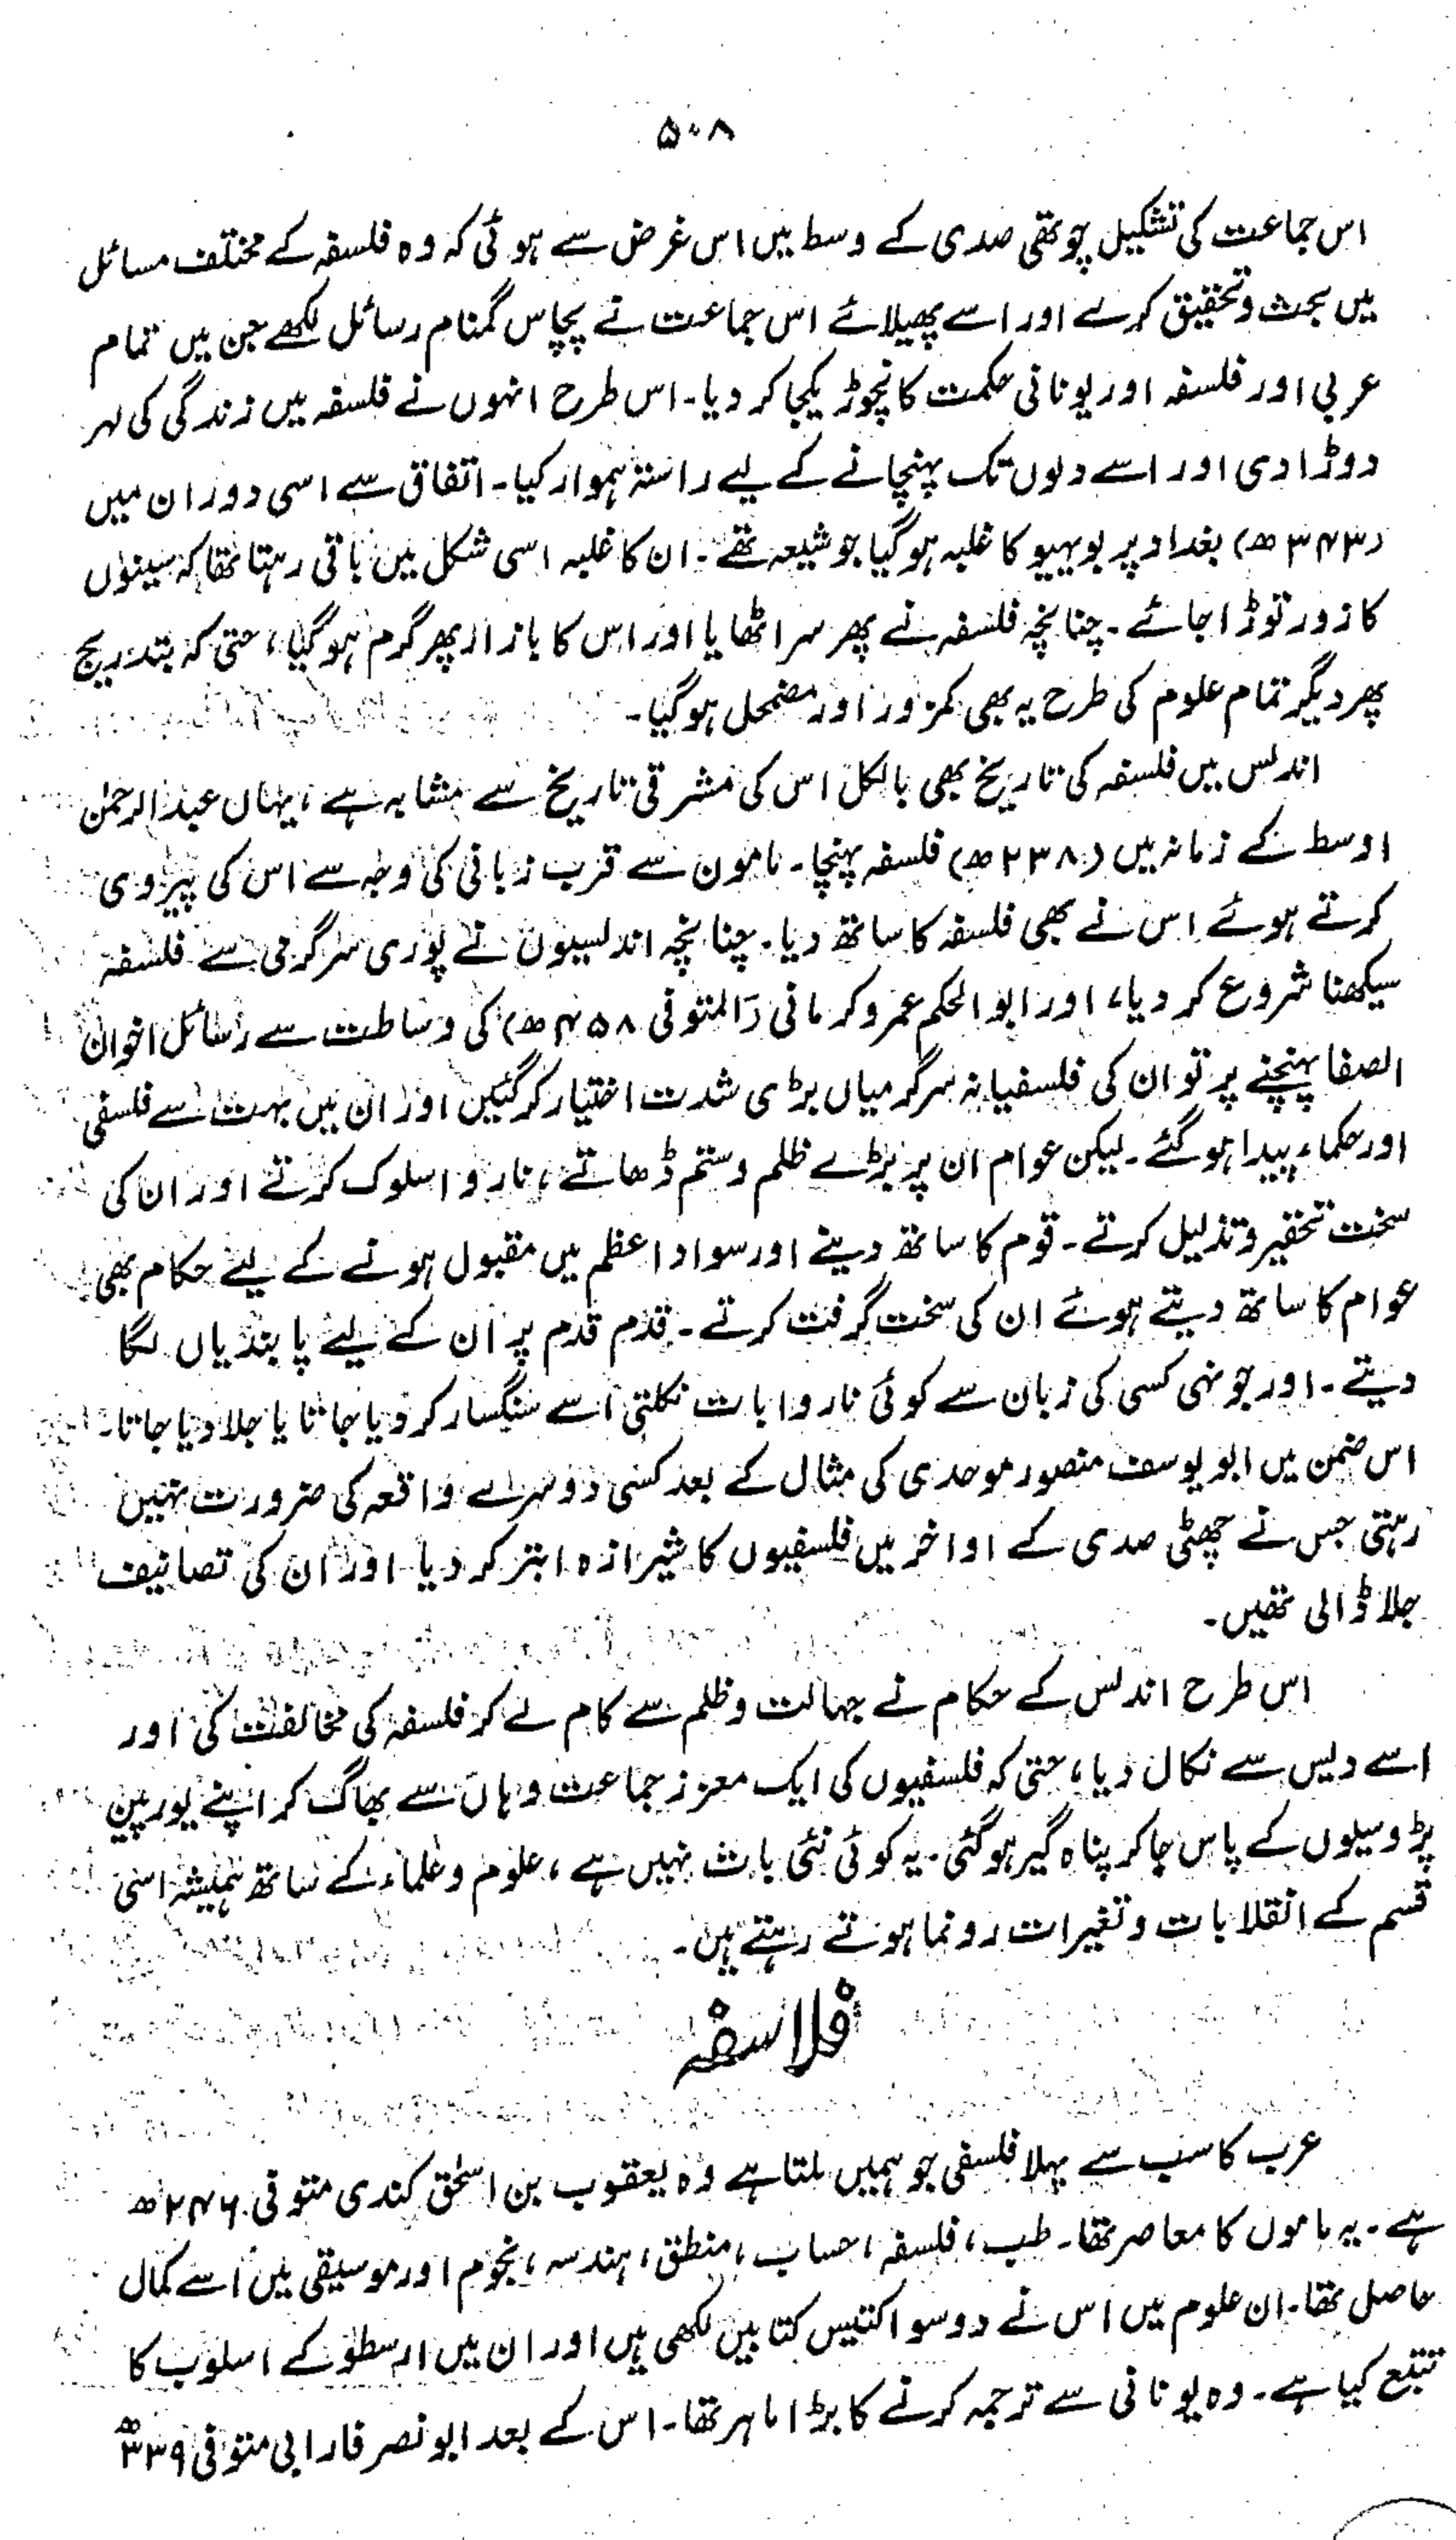 ۵۰۸
اس جماعت کی تشکیل چوتھی صدی کے وسط میں اس غرض سے ہوئی کہ وہ فلسفہ کے مختلف مسائل
میں بحث و تحقیق کرے اور اسے پھیلائے اس جماعت نے پچاس گمنام رسائل لکھے جن میں تمام
عربی اور فلسفہ اور یونانی حکمت کا نچوڑ یکجا کر دیا۔ اس طرح انہوں نے فلسفہ میں زندگی کی لہر
دوڑا دی اور اسے دلوں تک پہنچانے کے لیے راستہ ہموار کیا۔ اتفاق سے اسی دوران میں
(۳۴۳ھ) بغداد پر بویہیو کا غلبہ ہو گیا جو شیعہ تھے۔ ان کا غلبہ اسی شکل میں باقی رہتا تھا کہ سینوں
کا زور توڑا جائے۔ چنانچہ فلسفہ نے پھر سر اٹھایا اور اس کا بازار پھر گرم ہو گیا، حتی کہ بتدریج
پھر دیگر تمام علوم کی طرح یہ بھی کمزور اور مضمحل ہو گیا۔
اندلس میں فلسفہ کی تاریخ بھی بالکل اس کی مشرقی تاریخ سے مشابہ ہے، یہاں عبدالرحمٰن
اوسط کے زمانہ میں (۲۳۸ھ) فلسفہ پہنچا۔ مامون سے قرب زبانی کی وجہ سے اس کی پیروی
کرتے ہوئے اس نے بھی فلسفہ کا ساتھ دیا۔ چنانچہ اندلسیوں نے پوری سرگرمی سے فلسفہ
سیکھنا شروع کر دیا، اور ابو الحکم عمرو کرمانی (المتوفی ۴۵۸ھ) کی وساطت سے رسائل اخوان
الصفا پہنچنے پر تو ان کی فلسفیانہ سرگرمیاں بڑی شدت اختیار کر گئیں اور ان میں بہت سے فلسفی
اور حکماء پیدا ہو گئے۔ لیکن عوام ان پر بڑے ظلم و ستم ڈھاتے، ناروا سلوک کرتے اور ان کی
سخت تحقیر و تذلیل کرتے۔ قوم کا ساتھ دینے اور سواد اعظم میں مقبول ہونے کے لیے حکام بھی
عوام کا ساتھ دیتے ہوئے ان کی سخت گرفت کرتے۔ قدم قدم پر ان کے لیے پابندیاں لگا
دیتے۔ اور جونہی کسی کی زبان سے کوئی ناروا بات نکلتی اسے سنگسار کر دیا جاتا یا جلا دیا جاتا۔
اس ضمن میں ابو یوسف منصور موحدی کی مثال کے بعد کسی دوسرے واقعہ کی ضرورت نہیں
رہتی جس نے چھٹی صدی کے اواخر میں فلسفیوں کا شیرازہ ابتر کر دیا اور ان کی تصانیف
جلا ڈالی تھیں۔
اس طرح اندلس کے حکام نے جہالت و ظلم سے کام لے کر فلسفہ کی مخالفت کی اور
اسے دیس سے نکال دیا، حتی کہ فلسفیوں کی ایک معزز جماعت وہاں سے بھاگ کر اپنے یورپین
پڑوسیوں کے پاس جا کر پناہ گیر ہو گئی۔ یہ کوئی نئی بات نہیں ہے، علوم و علماء کے ساتھ ہمیشہ اسی
قسم کے انقلابات و تغیرات رونما ہوتے رہتے ہیں۔
فلاسفہ
عرب کا سب سے پہلا فلسفی جو ہمیں ملتا ہے وہ یعقوب بن اسحٰق کندی متوفی ۲۴۶ھ
ہے۔ یہ ماموں کا معاصر تھا۔ طب، فلسفہ، حساب، منطق، ہندسہ، نجوم اور موسیقی میں اسے کمال
حاصل تھا۔ ان علوم میں اس نے دو سو اکتیس کتابیں لکھی ہیں اور ان میں ارسطو کے اسلوب کا
تتبع کیا ہے۔ وہ یونانی سے ترجمہ کرنے کا بڑا ماہر تھا۔ اس کے بعد ابو نصر فارابی متوفی ۳۳۹ھ